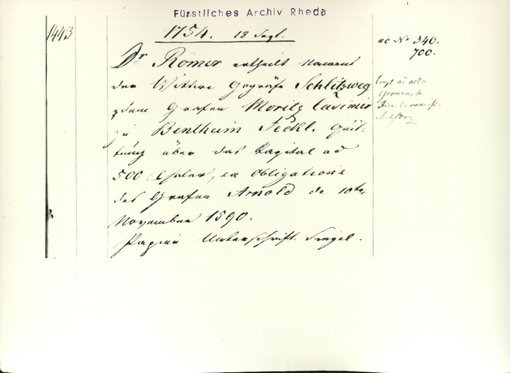 Fürstliches Archiv Rheda
1443
1754. 18 Sept.
ad No 340.
700.
Dr Römer ertheilt Namens
der Wittwe Gografe Schlitzweg
dem Grafen Moritz Casimir
zu Bentheim Teckl. Quit-
tung über das Kapital ad
500 Thaler, ex obligatione
des Grafen Arnold de 10ten
November 1590.
Papier Unterschrift. Siegel.
liegt